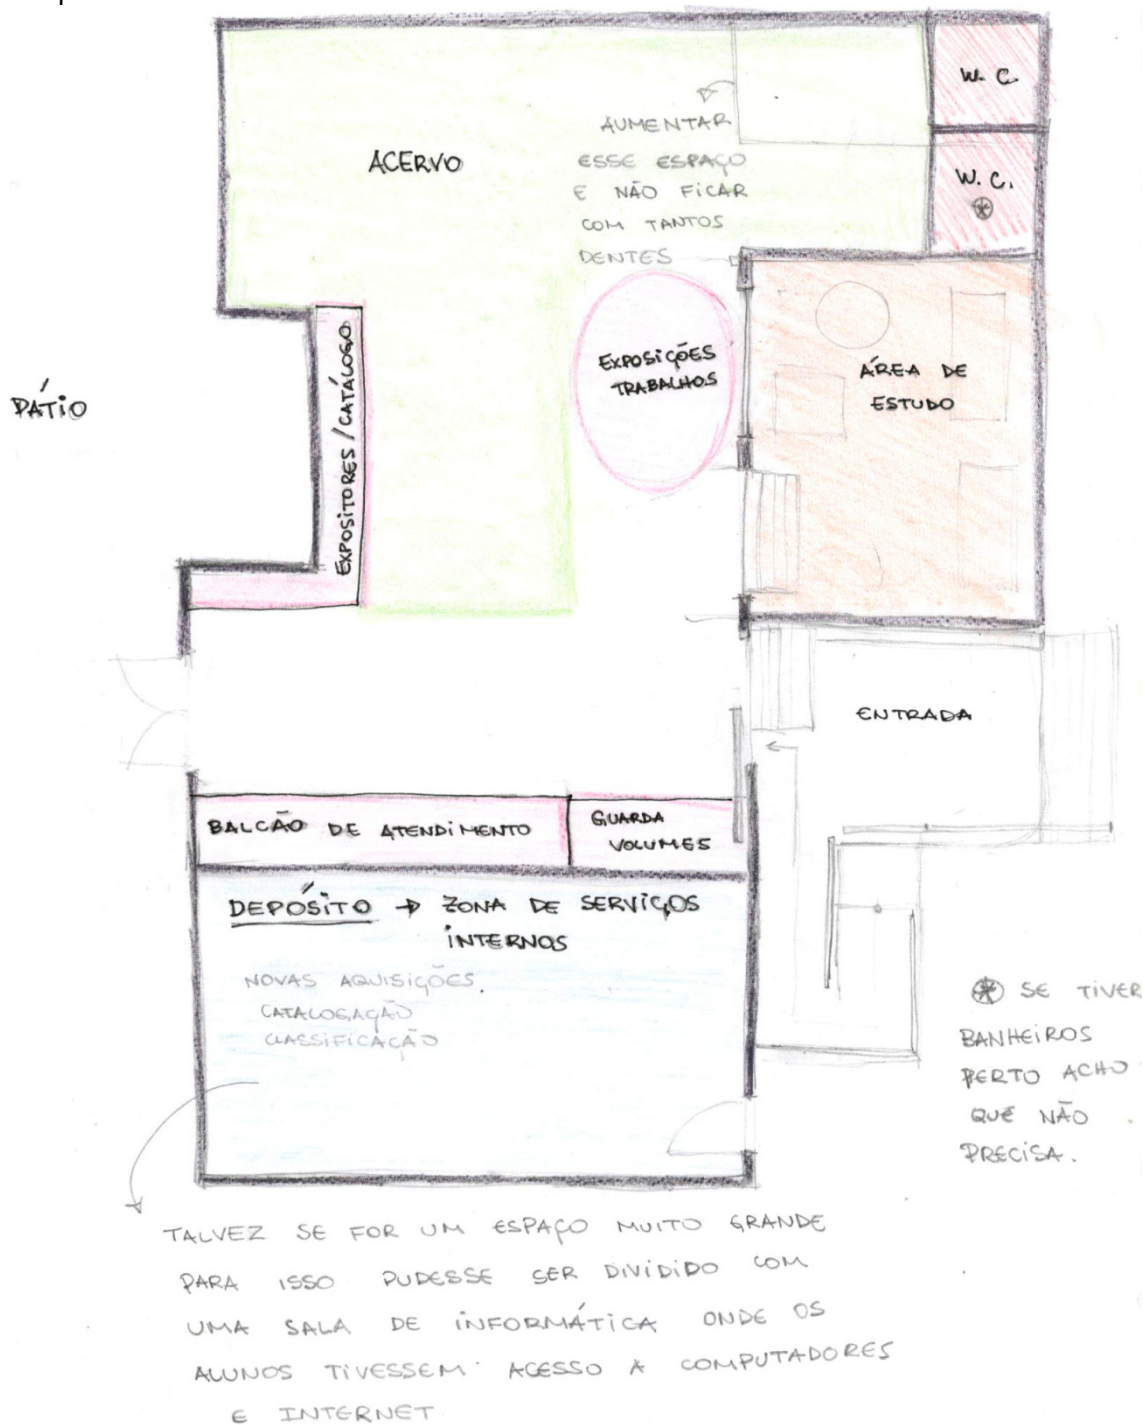 W. C.
AUMENTAR
ESSE ESPAÇO
E NÃO FICAR
COM TANTOS
DENTES
ACERVO
W. C.
PÁTIO
EXPOSITORES/CATÁLOGO
EXPOSIÇÕES
TRABALHOS
ÁREA DE
ESTUDO
ENTRADA
BALCÃO DE ATENDIMENTO
GUARDA
VOLUMES
DEPÓSITO → ZONA DE SERVIÇOS
INTERNOS
NOVAS AQUISIÇÕES.
CATALOGAÇÃO
CLASSIFICAÇÃO
SE TIVER
BANHEIROS
PERTO ACHO
QUE NÃO
PRECISA.
TALVEZ SE FOR UM ESPAÇO MUITO GRANDE
PARA ISSO PUDESSE SER DIVIDIDO COM
UMA SALA DE INFORMÁTICA ONDE OS
ALUNOS TIVESSEM ACESSO A COMPUTADORES
E INTERNET